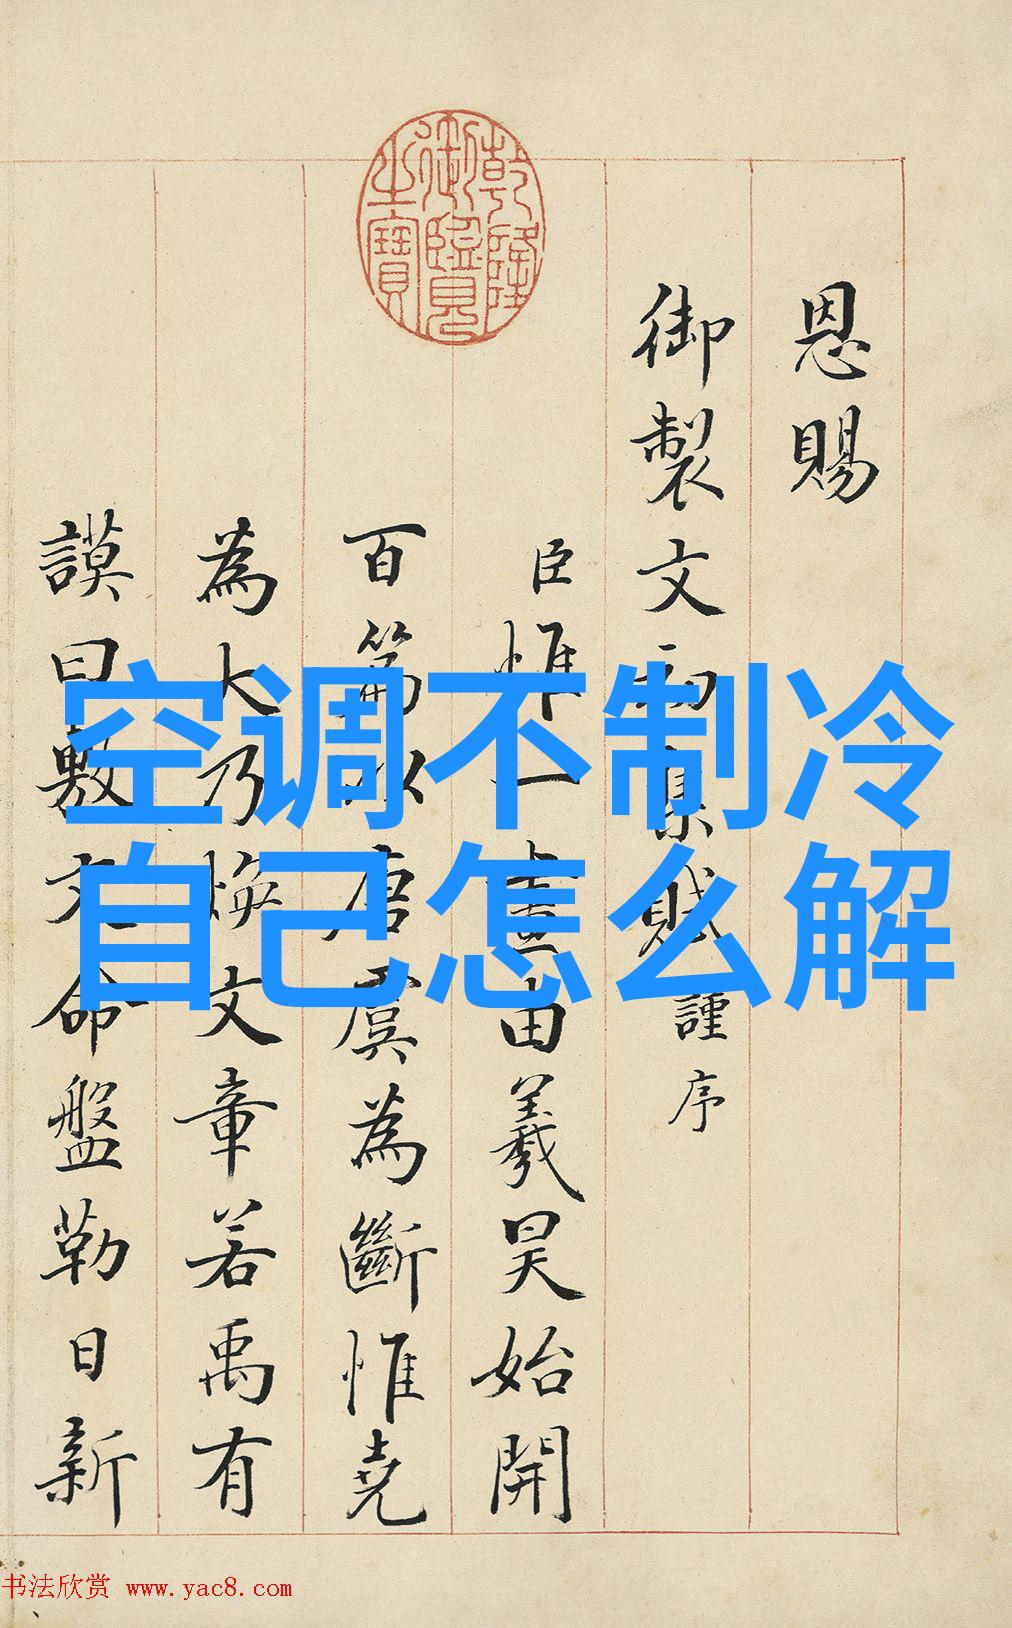 空调不制冷
自己怎么解
乾隆
御覽
之寶
恩賜
御製文初集賦謹序
臣惟一畫由羲昊始開
百篇以唐虞為斷惟堯
為大乃煥文章若禹有
謨曰敷文命盤勒日新
书法欣赏 www.yac8.com